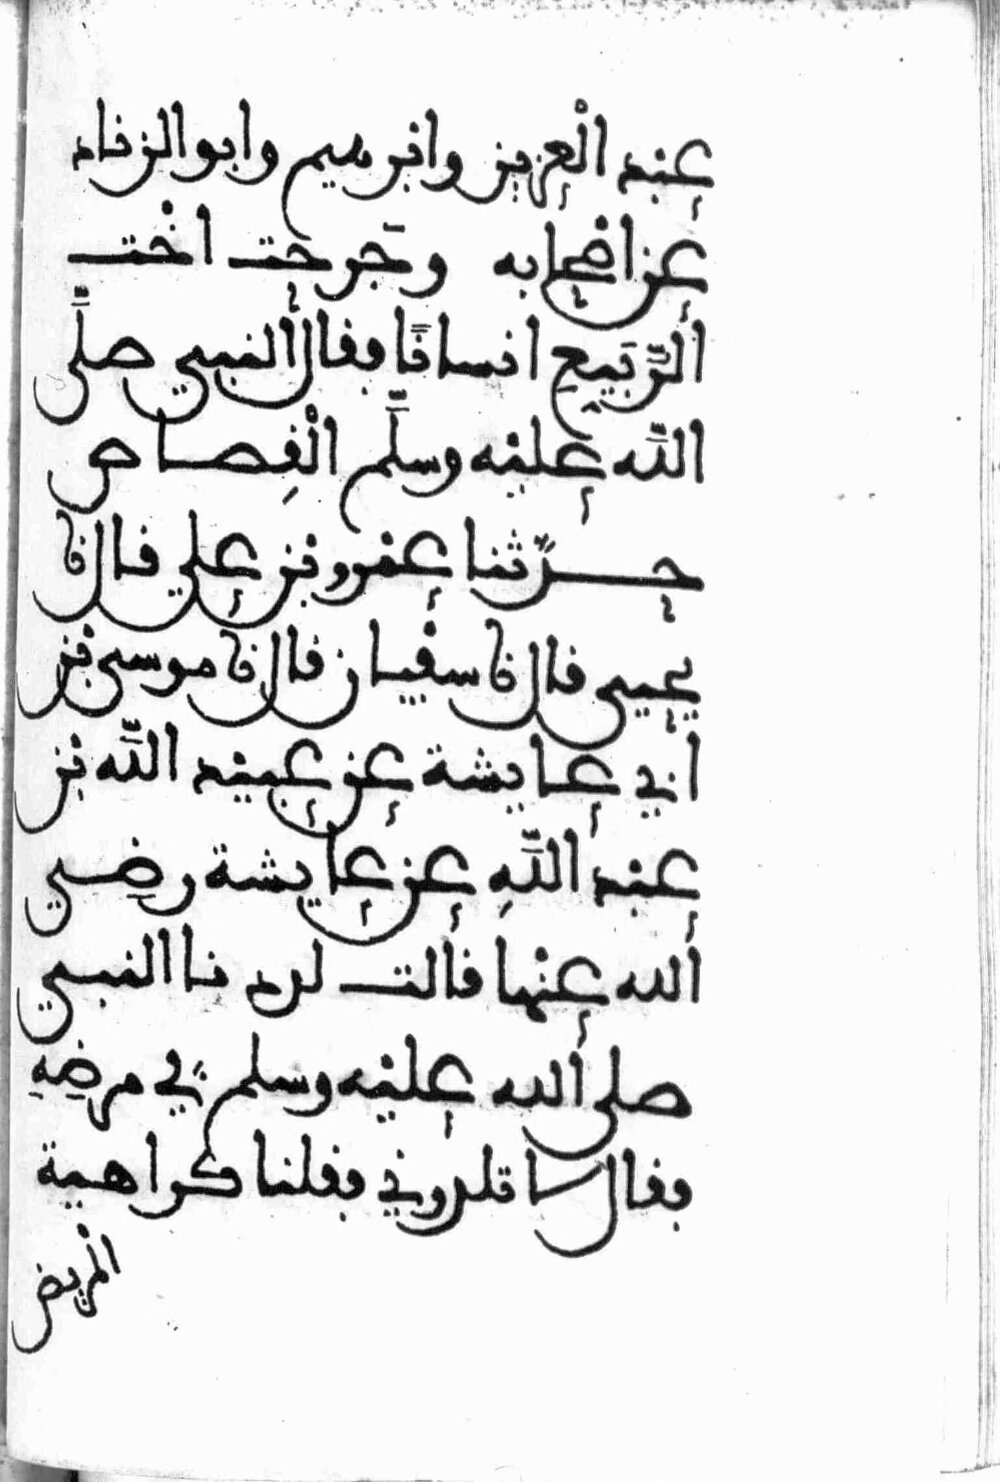 عبد الْعزيز وابرهيم وابو الزناد
عن اصْحابه وجَرحت اخْت
الرَّبيع انسانًا فقال النبي صلَّى
اللَّه عليْه وسلَّم الْقِصاص
حدَّثنا عمْرو بْن علي قال نا
يحيى قال نا سفْيان قال نا موسى بْن
ابي عايشة عن عبيْد اللَّه بْن
عبْد اللَّهِ عن عايشة رضِي
الله عنْها قالت لددنا النبي
صلى الله عليْه وسلم في مرضِهِ
فقال لا تلدوني فقلنا كراهية
الْمريض